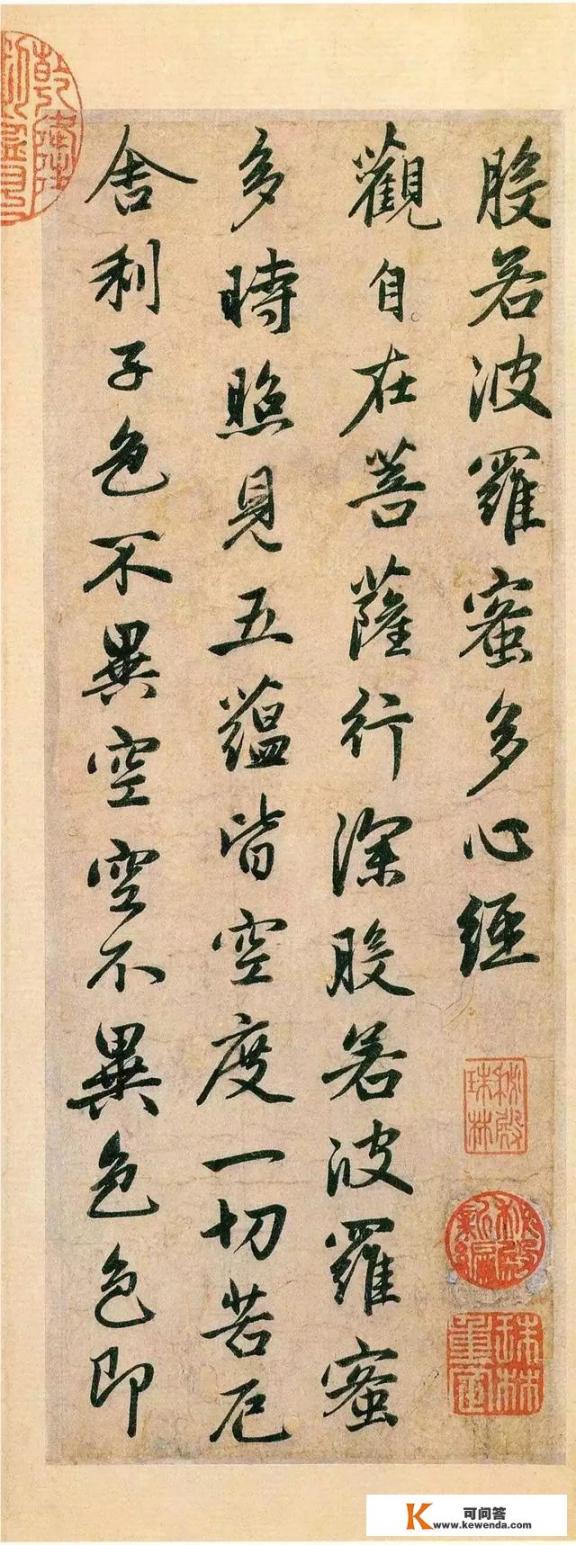 般若波羅蜜多心經
觀自在菩薩行深般若波羅蜜
多時照見五蘊皆空度一切苦厄
舍利子色不異空空不異色色即
秘殿珠林
秘殿新編
珠林重定
乾隆
可问答
www.kewenda.com